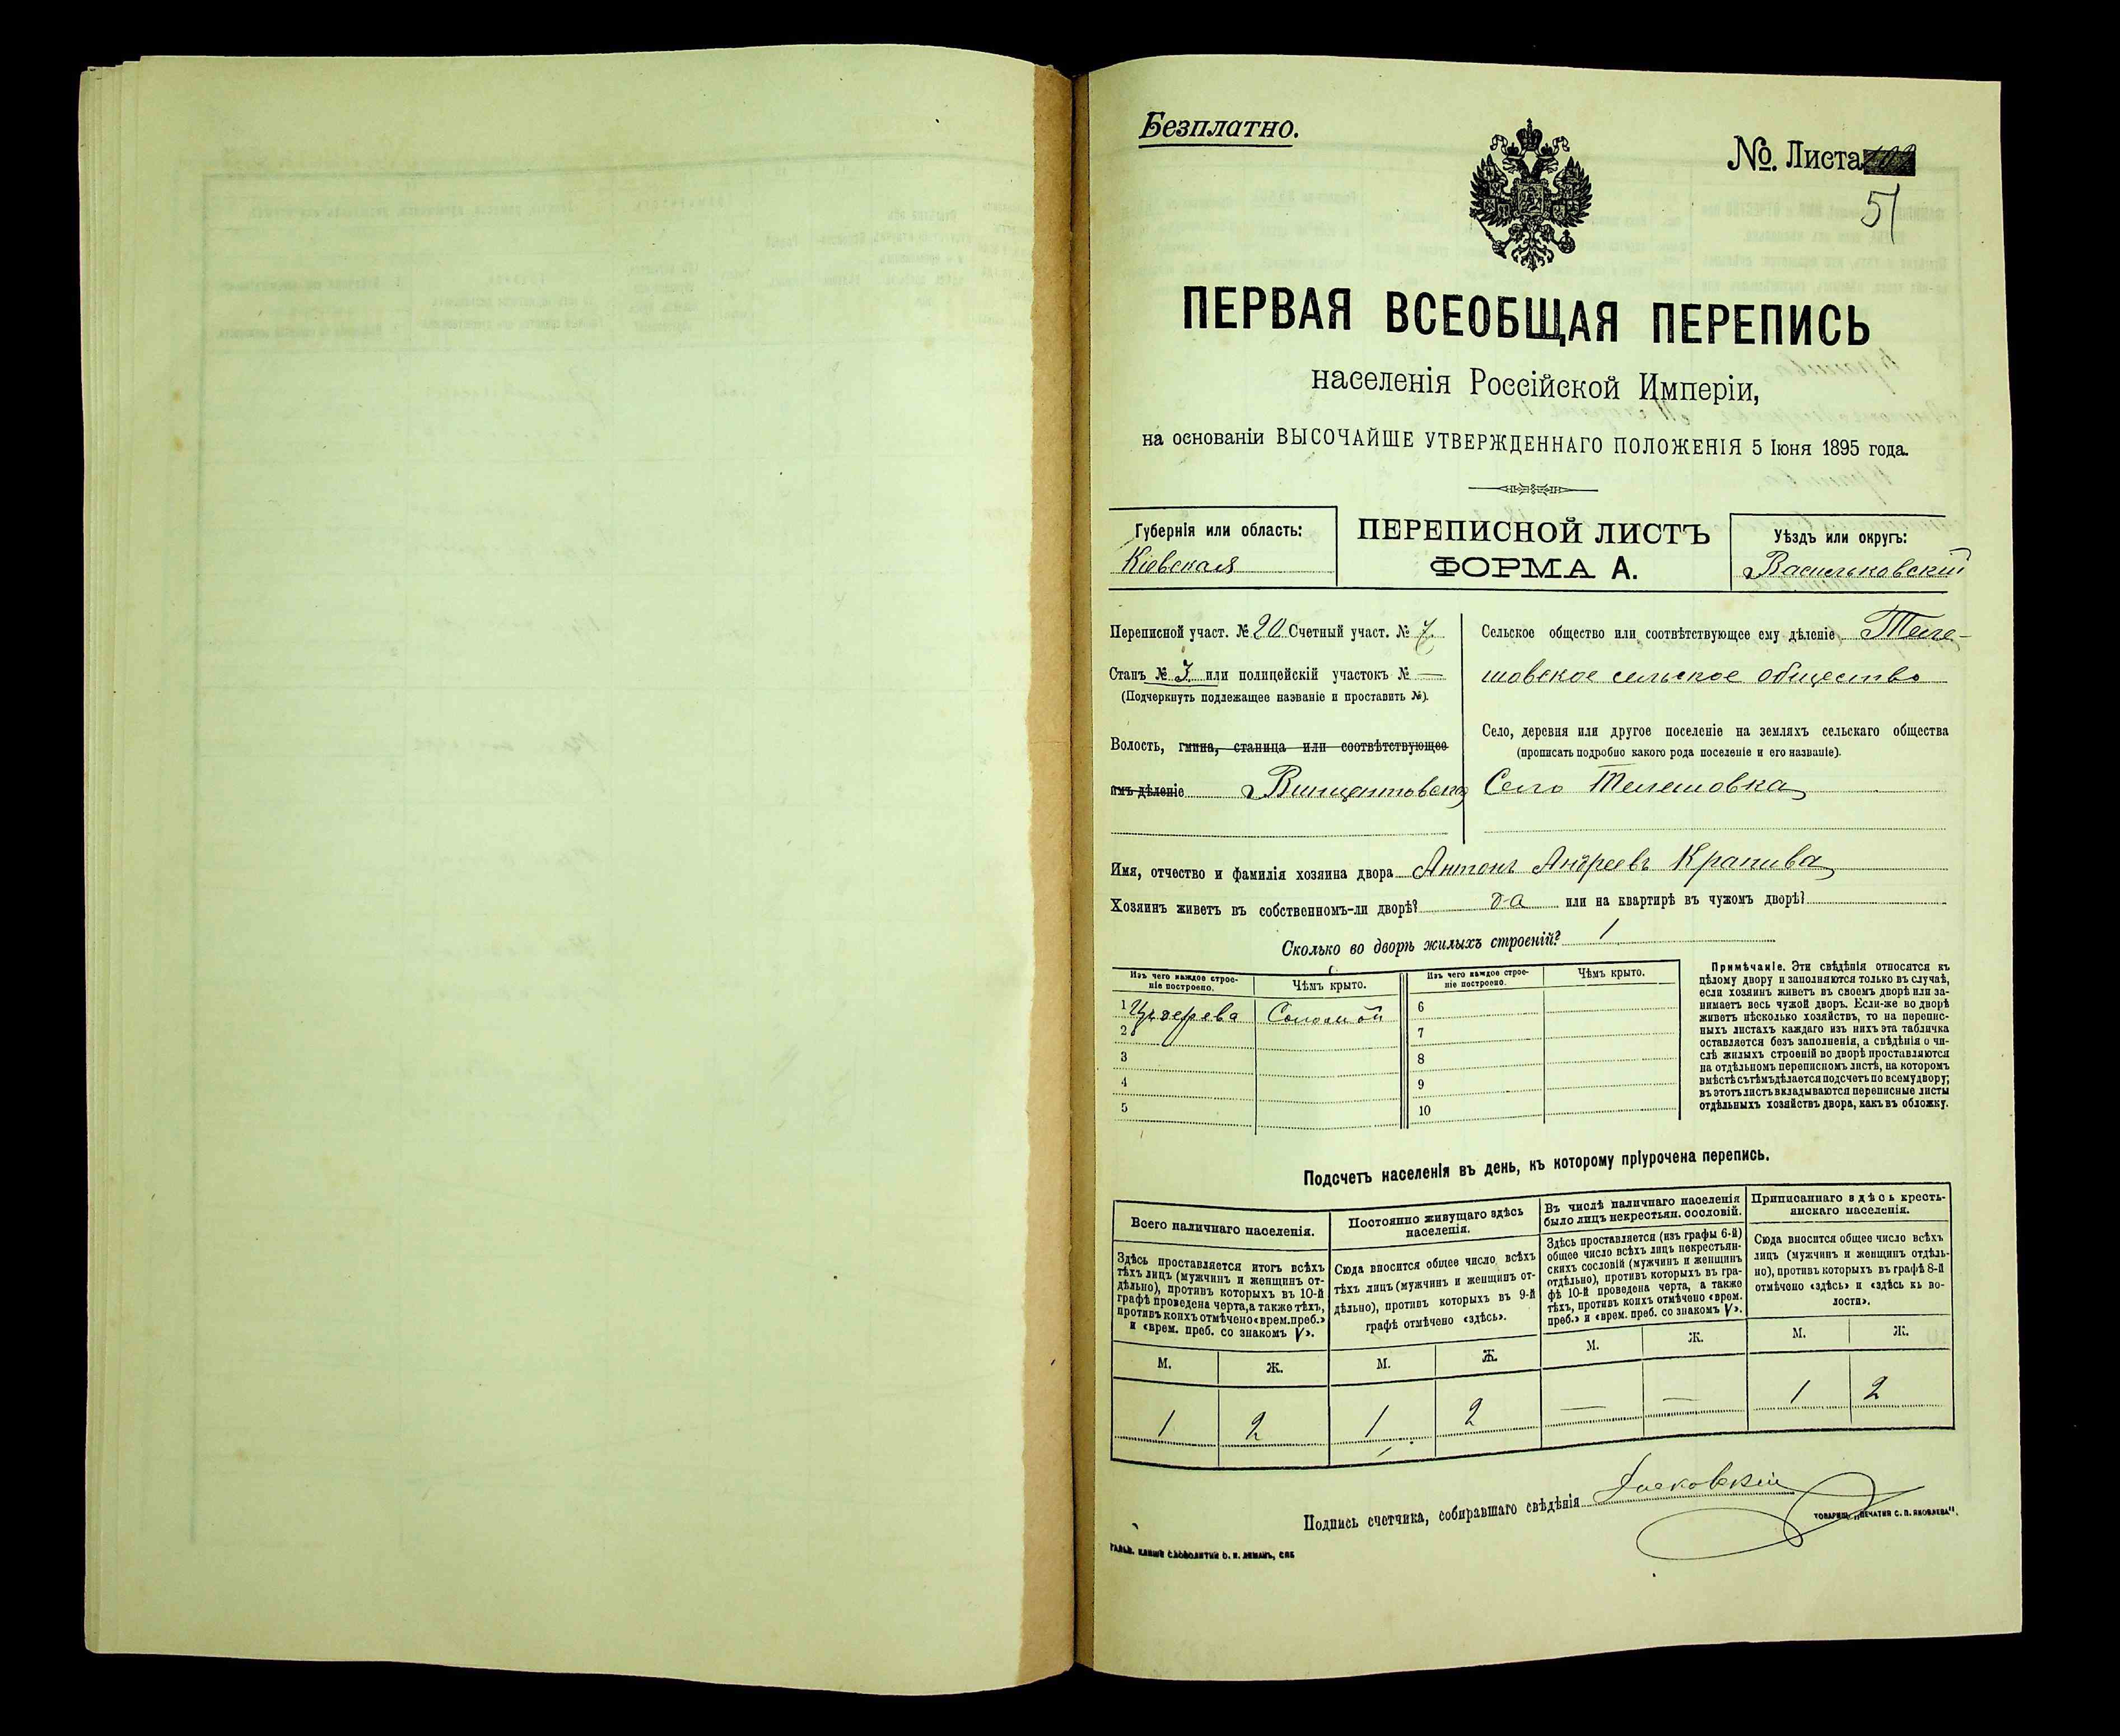 Безплатно.
№. Листа
51
ПЕРВАЯ ВСЕОБЩАЯ ПЕРЕПИСЬ
населенія Россійской Имперіи,
на основаніи ВЫСОЧАЙШЕ УТВЕРЖДЕННАГО ПОЛОЖЕНІЯ 5 Іюня 1895 года.
Губернія или область:
Кіевская
ПЕРЕПИСНОЙ ЛИСТЪ
ФОРМА А.
Уѣздъ или округъ:
Васильковскій
Переписной участ. № 20 Счетный участ. № 7.
Станъ № 3 или полицейскій участокъ № —
(Подчеркнуть подлежащее названіе и проставить №).
Волость, гмина, станица или соотвѣтствующее
имъ дѣленіе Винцентовская
Сельское общество или соотвѣтствующее ему дѣленіе Теле-
шовское сельское общество
Село, деревня или другое поселеніе на земляхъ сельскаго общества
(прописать подробно какого рода поселеніе и его названіе).
Село Телешовка
Имя, отчество и фамилія хозяина двора Антонъ Андреевъ Крапива
Хозяинъ живетъ въ собственномъ-ли дворѣ? да или на квартирѣ въ чужомъ дворѣ?
Сколько во дворѣ жилыхъ строеній? 1
Изъ чего каждое строе-
ніе построено.
Чѣмъ крыто.
Изъ чего каждое строе-
ніе построено.
Чѣмъ крыто.
1 Изъ дерева Соломой
2
3
4
5
6
7
8
9
10
Примѣчаніе. Эти свѣдѣнія относятся къ
цѣлому двору и заполняются только въ случаѣ,
если хозяинъ живетъ въ своемъ дворѣ или за-
нимаетъ весь чужой дворъ. Если-же во дворѣ
живетъ нѣсколько хозяйствъ, то на перепис-
ныхъ листахъ каждаго изъ нихъ эта табличка
оставляется безъ заполненія, а свѣдѣнія о чи-
слѣ жилыхъ строеній во дворѣ проставляются
на отдѣльномъ переписномъ листѣ, на которомъ
вмѣстѣ съ тѣмъ дѣлается подсчетъ по всему двору;
въ этотъ листъ вкладываются переписные листы
отдѣльныхъ хозяйствъ двора, какъ въ обложку.
Подсчетъ населенія въ день, къ которому пріурочена перепись.
Всего наличнаго населенія.
Здѣсь проставляется итогъ всѣхъ
тѣхъ лицъ (мужчинъ и женщинъ от-
дѣльно), противъ которыхъ въ 10-й
графѣ проведена черта, а также тѣхъ,
противъ коихъ отмѣчено «врем. преб.»
и «врем. преб. со знакомъ V».
Постоянно живущаго здѣсь
населенія.
Сюда вносится общее число всѣхъ
тѣхъ лицъ (мужчинъ и женщинъ от-
дѣльно), противъ которыхъ въ 9-й
графѣ отмѣчено «здѣсь».
Въ числѣ наличнаго населенія
было лицъ некрестьян. сословій.
Здѣсь проставляется (изъ графы 6-й)
общее число всѣхъ лицъ некрестьян-
скихъ сословій (мужчинъ и женщинъ
отдѣльно), противъ которыхъ въ гра-
фѣ 10-й проведена черта, а также
тѣхъ, противъ коихъ отмѣчено «врем.
преб.» и «врем. преб. со знакомъ V».
Приписаннаго здѣсь кресть-
янскаго населенія.
Сюда вносится общее число всѣхъ
лицъ (мужчинъ и женщинъ отдѣль-
но), противъ которыхъ въ графѣ 8-й
отмѣчено «здѣсь» и «здѣсь къ во-
лости».
М. Ж. М. Ж. М. Ж. М. Ж.
1 2 1 2 — — 1 2
Подпись счетчика, собиравшаго свѣдѣнія
ГАЛЬВ. КЛИШЕ СЛОВОЛИТНИ О. И. ЛЕМАНЪ, СПБ
ТОВАРИЩ. „ПЕЧАТНЯ С. П. ЯКОВЛЕВА".